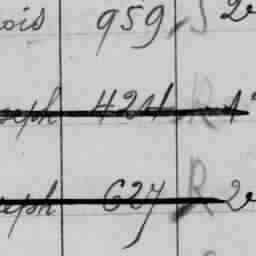 ois 959 S 2
seph 424 R 1
seph 627 R 2